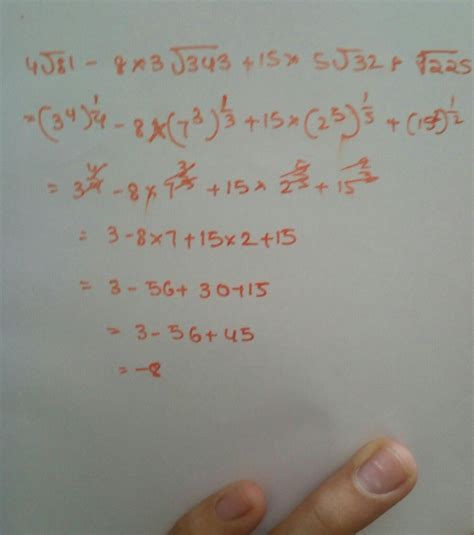 4√81 - 8×3√343 + 15× 5√32 + √225
= (3⁴)^1/4 - 8×(7³)^1/3 + 15×(2⁵)^1/5 + (15²)^1/2
= 3^4/4 - 8×7^3/3 + 15× 2^5/5 + 15^2/2
= 3-8×7+15×2+15
= 3-56+30+15
= 3-56+45
= -8